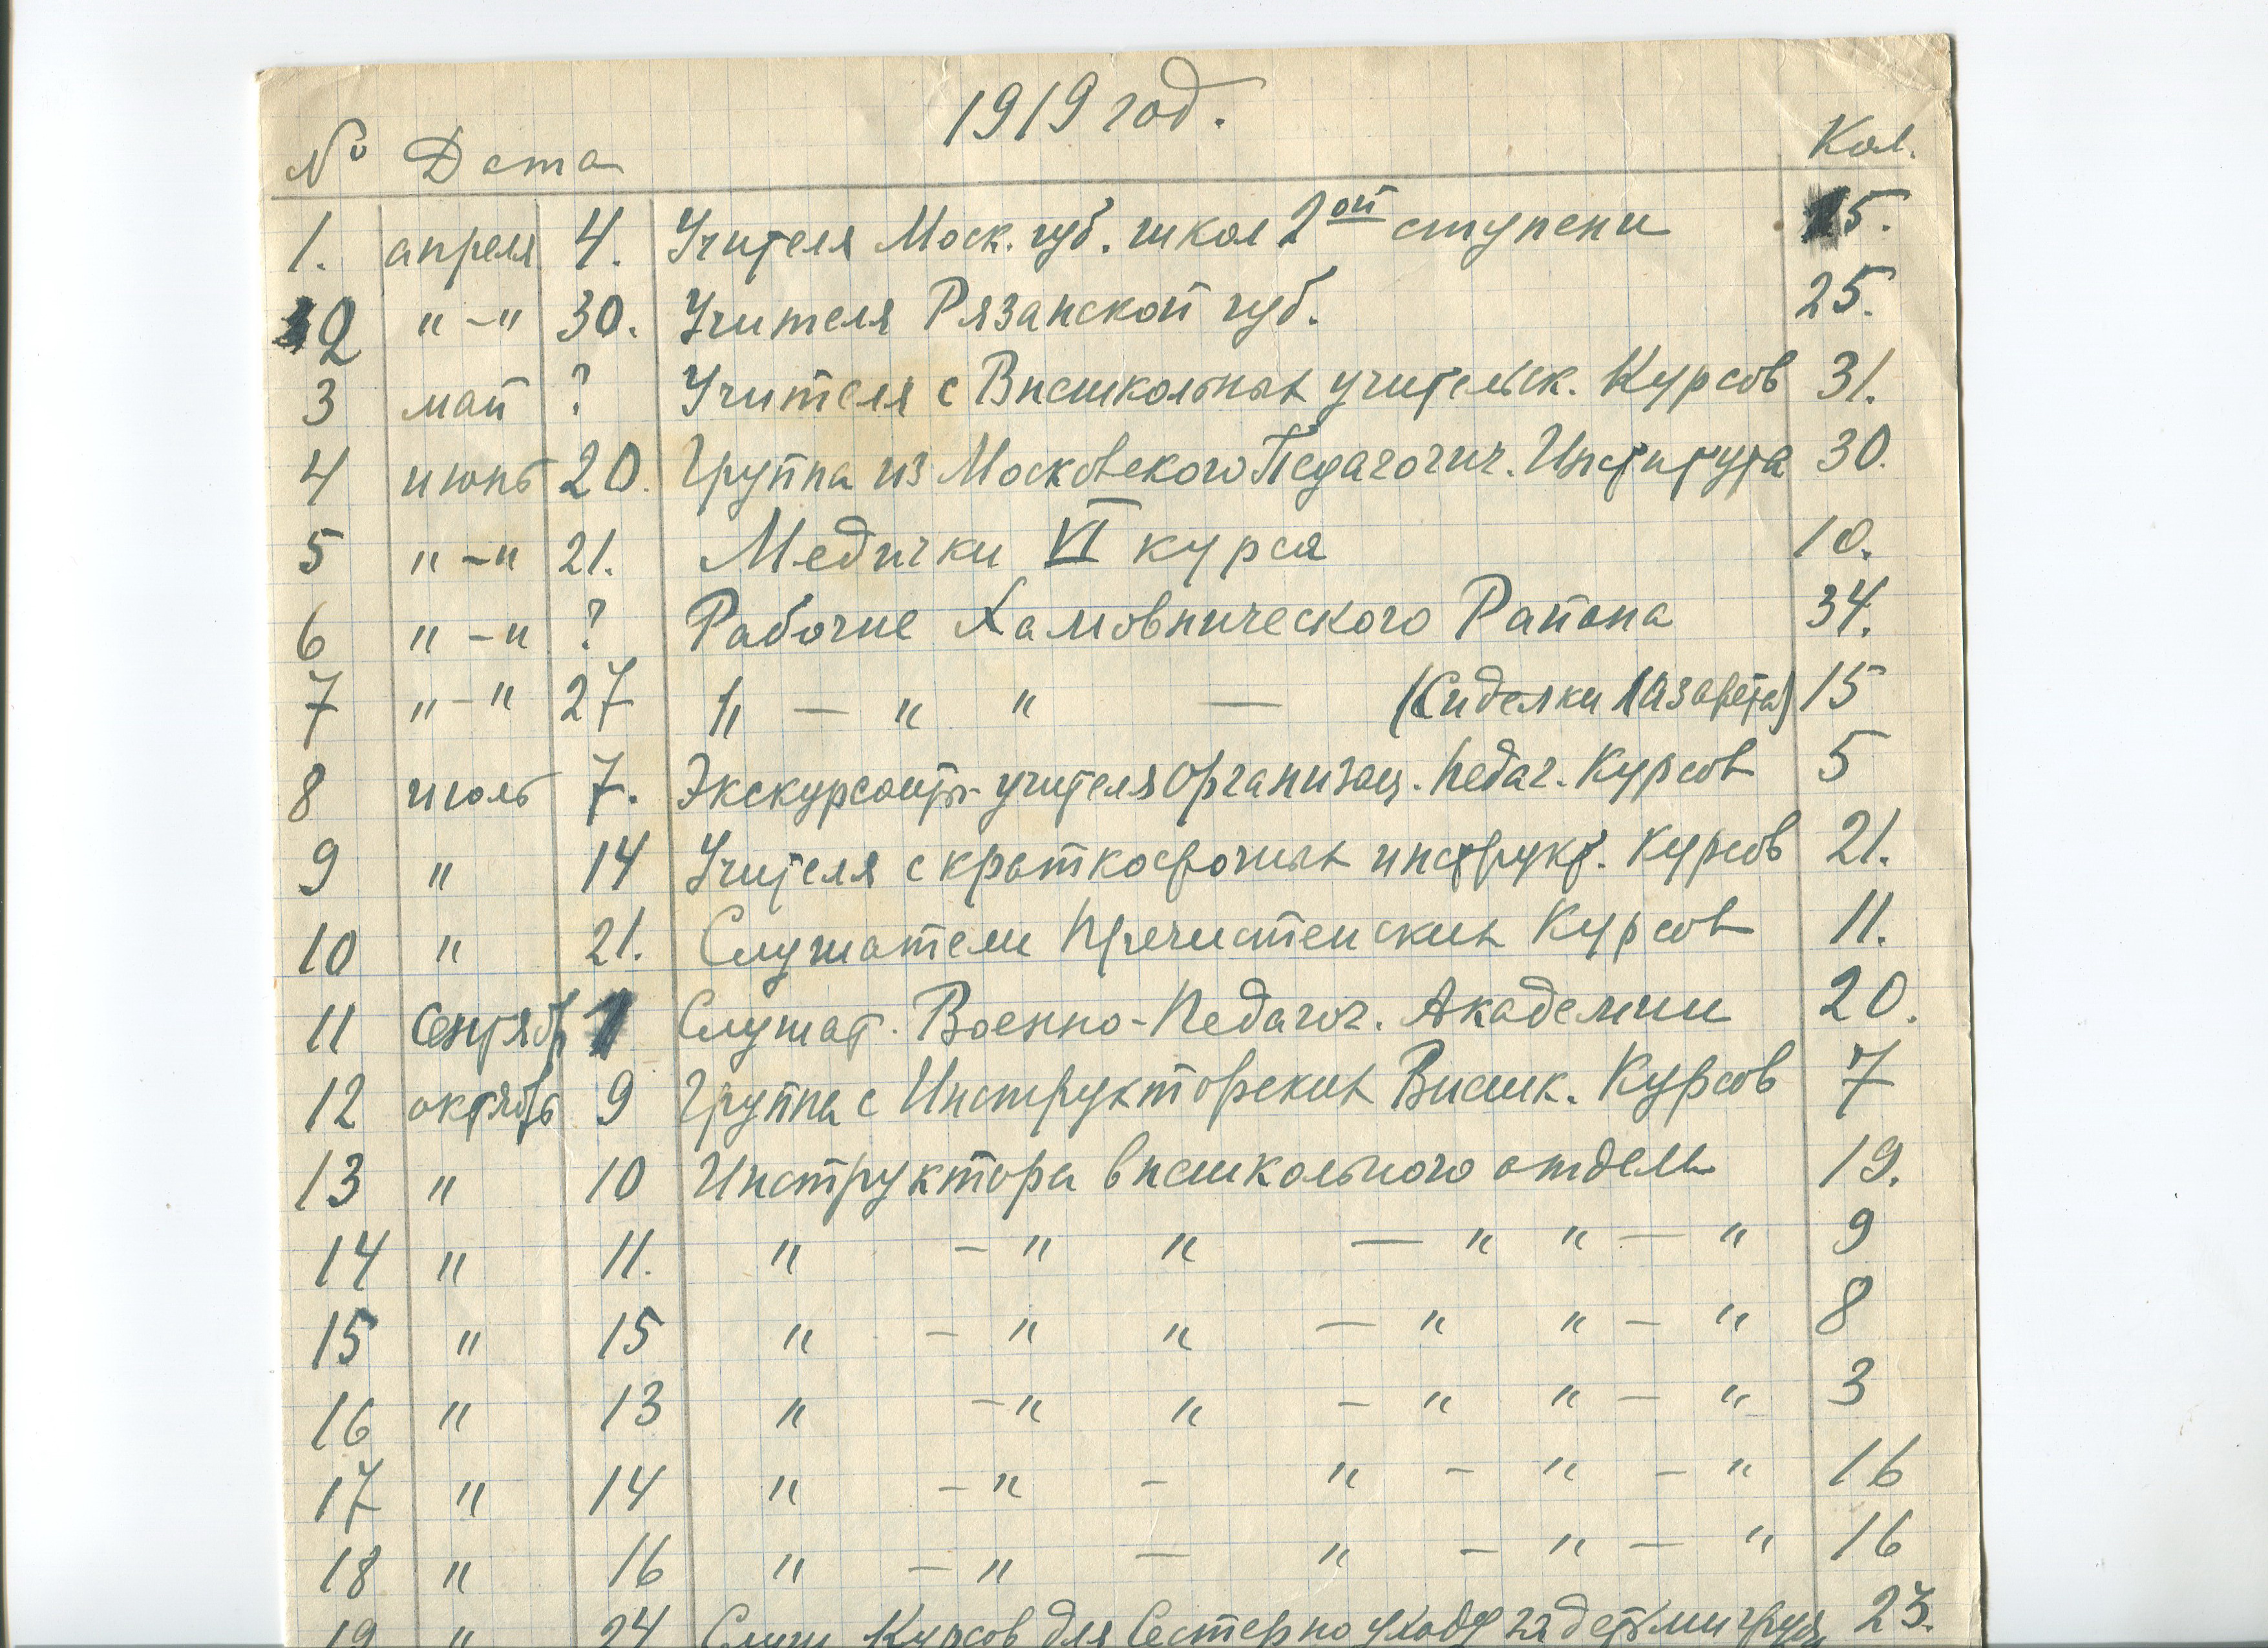 1919 год.
№ Дата Кол.
1. апреля 4. Учителя Моск. губ. школ 2ой ступени 15.
2 " - " 30. Учителя Рязанской губ. 25.
3 май ? Учителя с Внешкольных учительск. Курсов 31.
4 июнь 20. Группа из Московского Педагогич. Института 30.
5 " - " 21. Медички VI курса 10.
6 " - " ? Рабочие Хамовнического Района 34.
7 " - " 27 " — " " — (Сиделки лазарета) 15
8 июль 7. Экскурсанты-учителя Организац. Педаг. Курсов 5
9 " 14 Учителя с краткосрочных инструкт. Курсов 21.
10 " 21. Слушатели Пречистенских Курсов 11.
11 Сентябр 1 Слушат. Военно-Педагог. Академии 20.
12 октябрь 9 Группа с Инструкторских Внешк. Курсов 7
13 " 10 Инструктора внешкольного отдела 19.
14 " 11. " - " " — " " — " 9
15 " 15 " - " " — " " - " 8
16 " 13 " - " " - " " - " 3
17 " 14 " - " - " - " - " 16
18 " 16 " - " — " - " - " 16
19 " 24 Слуш Курсов для Сестер по уходу за детьми 23.